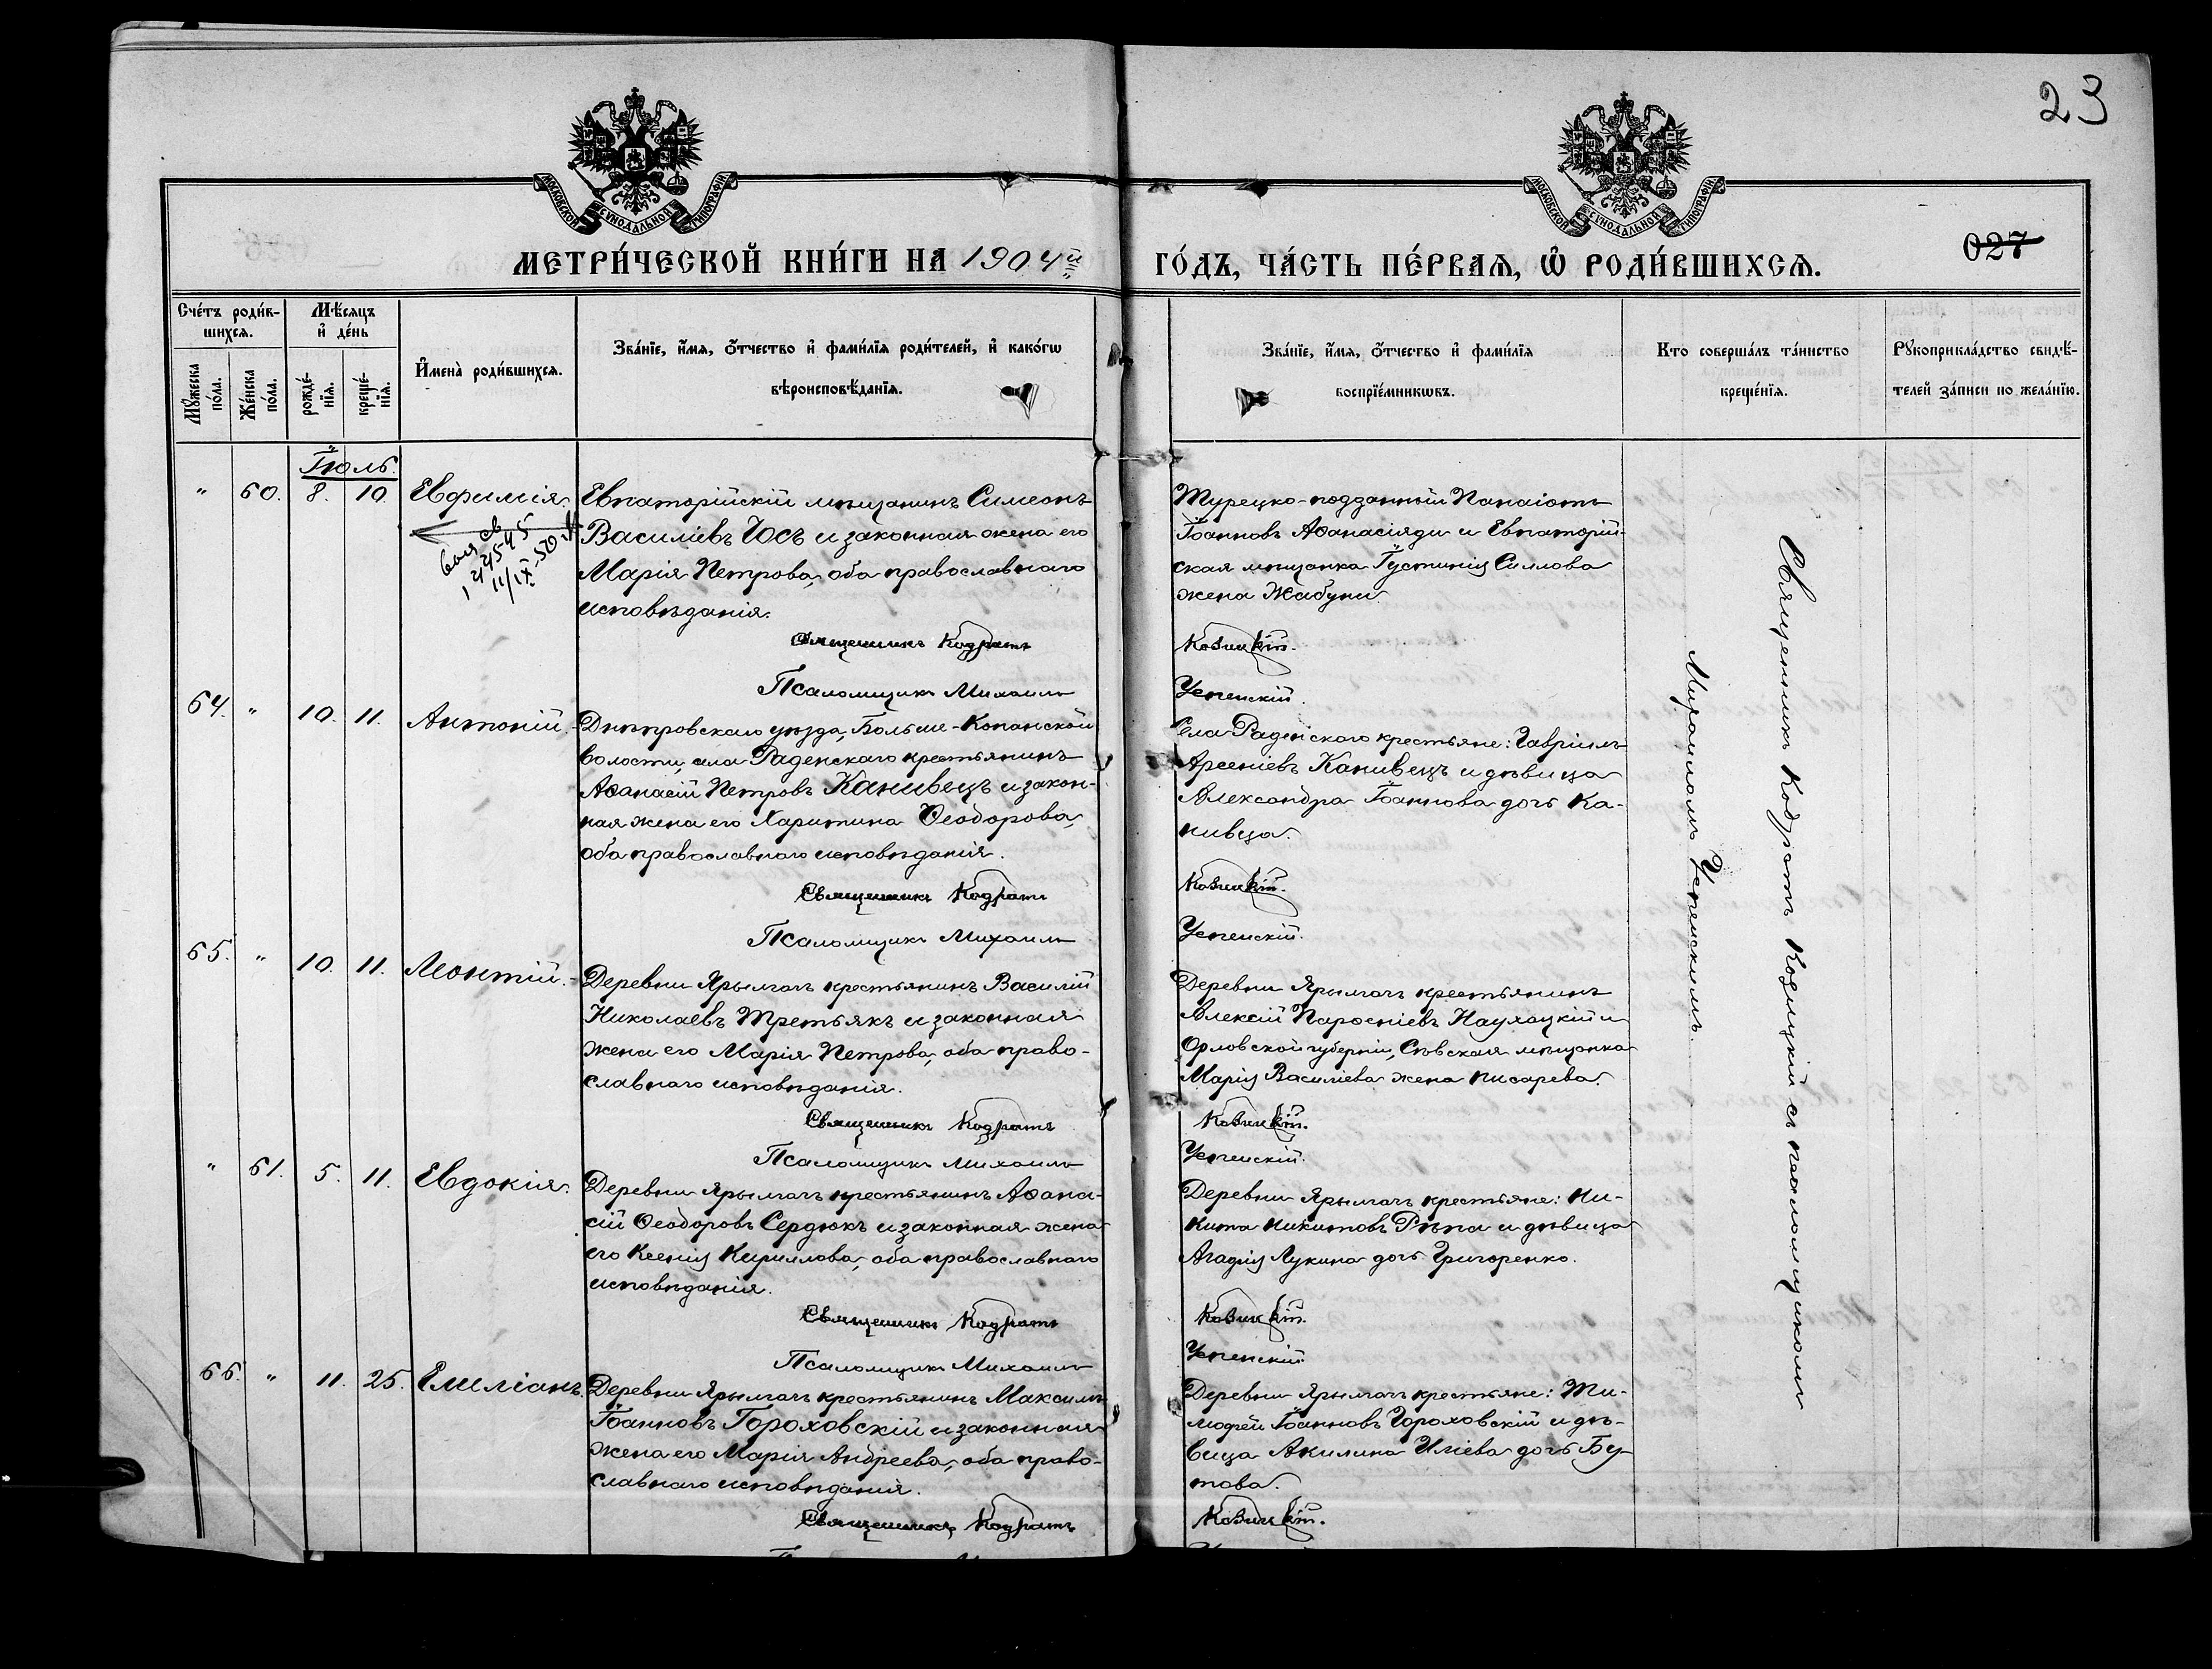 23
МОСКОВСКОЙ СѴНОДАЛЬНОЙ ТИПОГРАФІИ
МОСКОВСКОЙ СѴНОДАЛЬНОЙ ТИПОГРАФІИ
027
МЕТРИ́ЧЕСКОЙ КНИ́ГИ НА 1904й
ГО́ДЪ, ЧА́СТЬ ПЕ́РВАЯ, Ѡ҆ РОДИ́ВШИХСЯ.
Сче́тъ роди́в-
шихся.
Мꙋ́жеска по́ла.
Же́нска по́ла.
Мѣ́сяцъ
и҆ де́нь
рожде́-
нїя.
креще́-
нїя.
И҆мена̀ роди́вшихся.
Зва́нїе, и҆́мя, ѻ҆́тчество и҆ фами́лїя роди́телей, и҆ како́гѡ
вѣроисповѣ́данїя.
Зва́нїе, и҆́мя, ѻ҆́тчество и҆ фами́лїя
воспрїе́мникѡвъ.
Кто соверша́лъ та́инство
креще́нїя.
Рꙋкоприкла́дство свидѣ́-
телей за́писи по жела́нїю.
Іюль.
" 60. 8. 10. Евфимія.
Евпаторійскій мѣщанинъ Симеонъ
Василіевъ Юсъ и законная жена его
Марія Петрова, оба православнаго
исповѣданія.
Священникъ Кодратъ
Псаломщикъ Михаилъ
Турецко-подданный Панаіотъ
Іоанновъ Аѳанасіяди и Евпаторій-
ская мѣщанка Іустинія Силлова
жена Жабуни.
Козицкій.
Успенскій.
64. " 10. 11. Антоній.
Днѣпровскаго уѣзда, Больше-Копанской
волости, села Раденскаго крестьянинъ
Аѳанасій Петровъ Канивецъ и закон-
ная жена его Харитина Ѳеодорова,
оба православнаго исповѣданія.
Священникъ Кодратъ
Псаломщикъ Михаилъ
Села Раденскаго крестьяне: Гавріилъ
Арсеніевъ Канивецъ и дѣвица
Александра Іоаннова дочь Ка-
нивца.
Козицкій.
Успенскій.
65. " 10. 11. Леонтій.
Деревни Ярылгачъ крестьянинъ Василій
Николаевъ Третьякъ и законная
жена его Марія Петрова, оба право-
славнаго исповѣданія.
Священникъ Кодратъ
Псаломщикъ Михаилъ
Деревни Ярылгачъ крестьянинъ
Алексій Парѳеніевъ Наулацкій и
Орловской губерніи, Сѣвская мѣщанка
Марія Василіева жена Писарева.
Козицкій.
Успенскій.
" 61. 5. 11. Евдокія.
Деревни Ярылгачъ крестьянинъ Аѳана-
сій Ѳеодоровъ Сердюкъ и законная жена
его Ксенія Кириллова, оба православнаго
исповѣданія.
Священникъ Кодратъ
Псаломщикъ Михаилъ
Деревни Ярылгачъ крестьяне: Ни-
кита Никитовъ Рѣпа и дѣвица
Агафія Лукина дочь Григоренко.
Козицкій.
Успенскій.
66. " 11. 25. Емиліанъ.
Деревни Ярылгачъ крестьянинъ Максимъ
Іоанновъ Гороховскій и законная
жена его Марія Андреева, оба право-
славнаго исповѣданія.
Священникъ Кодратъ
Деревни Ярылгачъ крестьяне: Ти-
моѳей Іоанновъ Гороховскій и дѣ-
вица Акилина Иліева дочь Бу-
това.
Козицкій.
Священникъ Кодратъ Козицкій съ псаломщикомъ
Михаиломъ Успенскимъ.